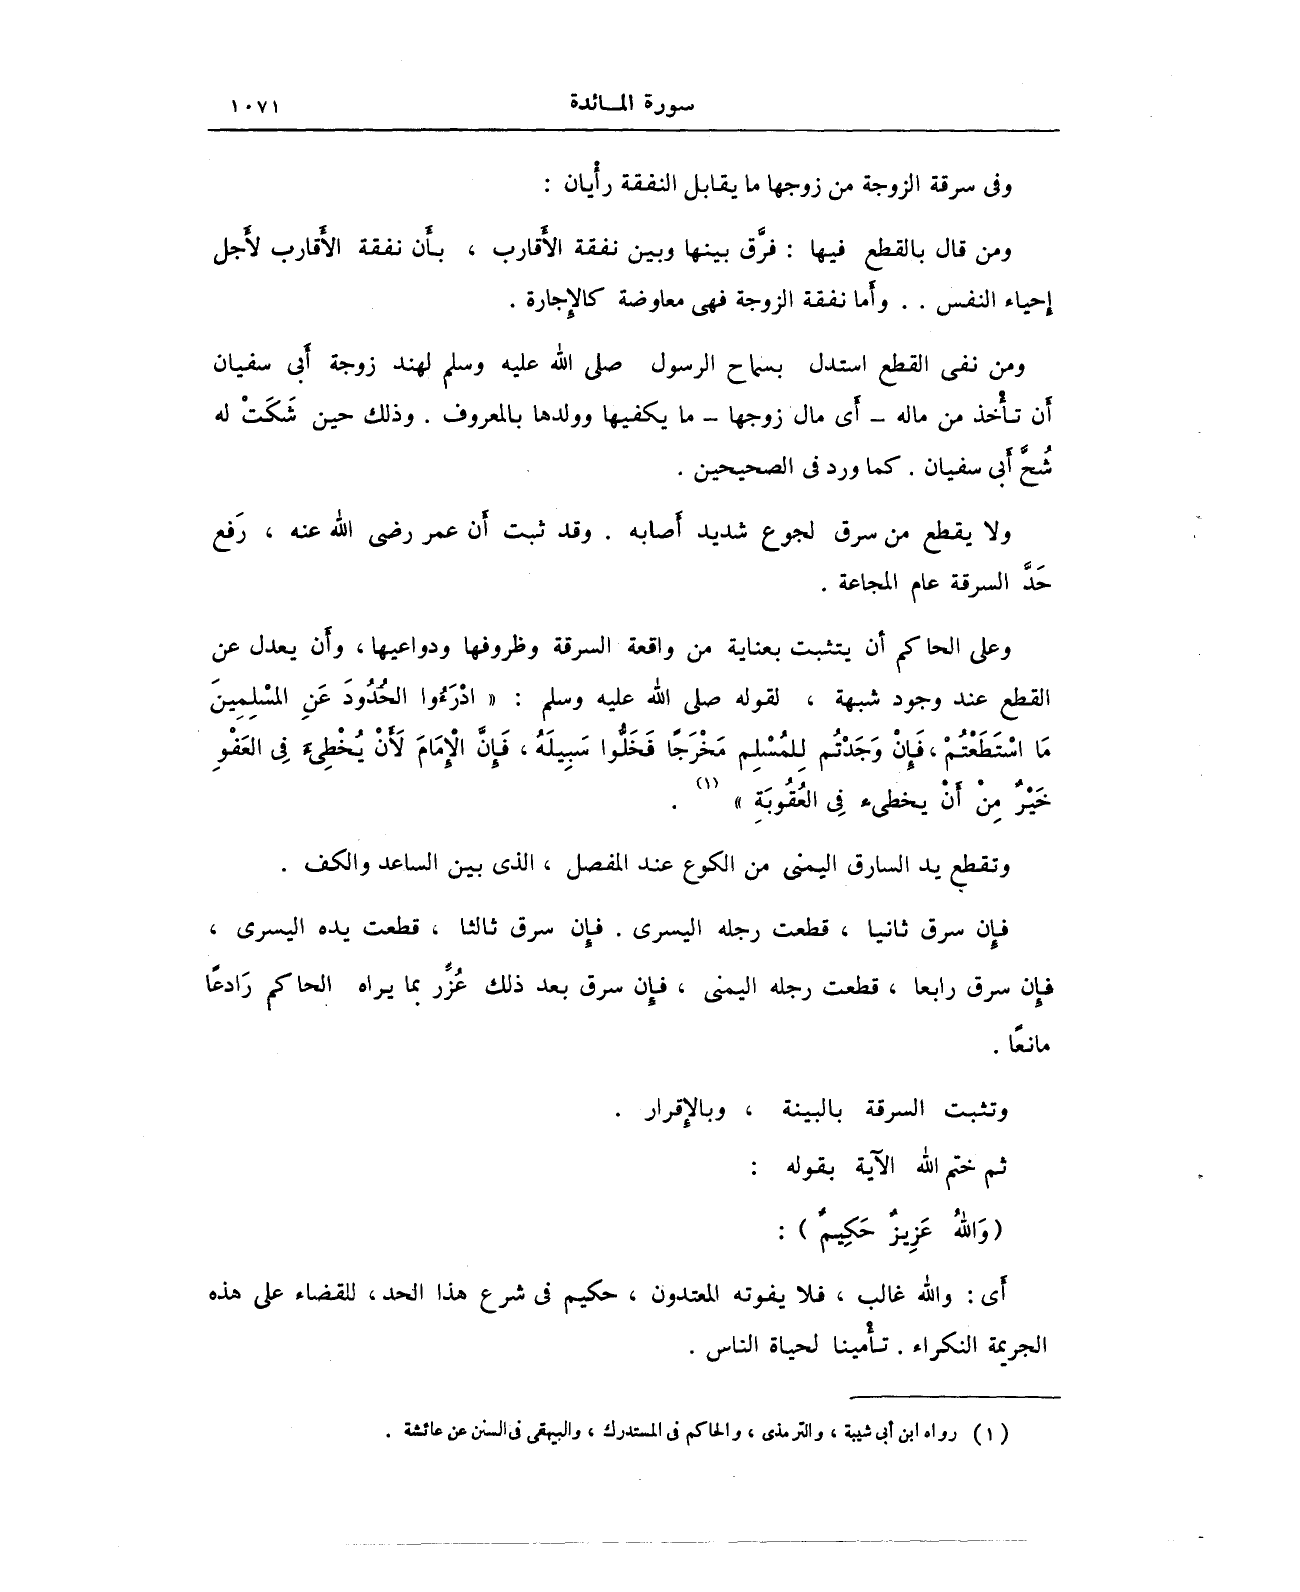 سورة المائدة ١٠٧١
وفى سرقة الزوجة من زوجها ما يقابل النفقة رأْيان :
ومن قال بالقطع فيها : فرَّق بينها وبين نفقة الأَقارب ، بأَن نفقة الأَقارب لأَجل
إحياء النفس . . وأَما نفقة الزوجة فهى معاوضة كالإجارة .
ومن نفى القطع استدل بسماح الرسول صلى الله عليه وسلم لهند زوجة أَبى سفيان
أَن تأْخذ من ماله – أَى مال زوجها – ما يكفيها وولدها بالمعروف . وذلك حين شَكَتْ له
شُحَّ أَبى سفيان . كما ورد فى الصحيحين .
ولا يقطع من سرق لجوع شديد أَصابه . وقد ثبت أَن عمر رضى الله عنه ، رَفع
حَدَّ السرقة عام المجاعة .
وعلى الحاكم أن يتثبت بعناية من واقعة السرقة وظروفها ودواعيها ، وأَن يعدل عن
القطع عند وجود شبهة ، لقوله صلى الله عليه وسلم : « ادْرَءُوا الحُدُودَ عَنِ المسْلِمِينَ
مَا اسْتَطَعْتُمْ ، فَإِنْ وَجَدْتُم لِلمُسْلِم مَخْرَجًا فَخَلُّوا سَبِيلَهُ ، فَإِنَّ الْإِمَامَ لَأَنْ يُخْطِىءَ فِى العَفْوِ
خَيْرٌ مِنْ أَنْ يخطىء فِى العُقُوبَةِ » (١) .
وتقطع يد السارق اليمنى من الكوع عند المفصل ، الذى بين الساعد والكف .
فإن سرق ثانيا ، قطعت رجله اليسرى . فإن سرق ثالثا ، قطعت يده اليسرى ،
فإن سرق رابعا ، قطعت رجله اليمنى ، فإن سرق بعد ذلك عُزِّر بما يراه الحاكم رَادعًا
مانعًا .
وتثبت السرقة بالبينة ، وبالإقرار .
ثم ختم الله الآية بقوله :
(وَاللهُ عَزِيزٌ حَكِيمٌ ) :
أَى : والله غالب ، فلا يفوته المعتدون ، حكيم فى شرع هذا الحد ، للقضاء على هذه
الجريمة النكراء . تأْمينا لحياة الناس .
(١) رواه ابن أبى شيبة ، والترمذى ، والحاكم فى المستدرك ، والبيهقى فى السنن عن عائشة .